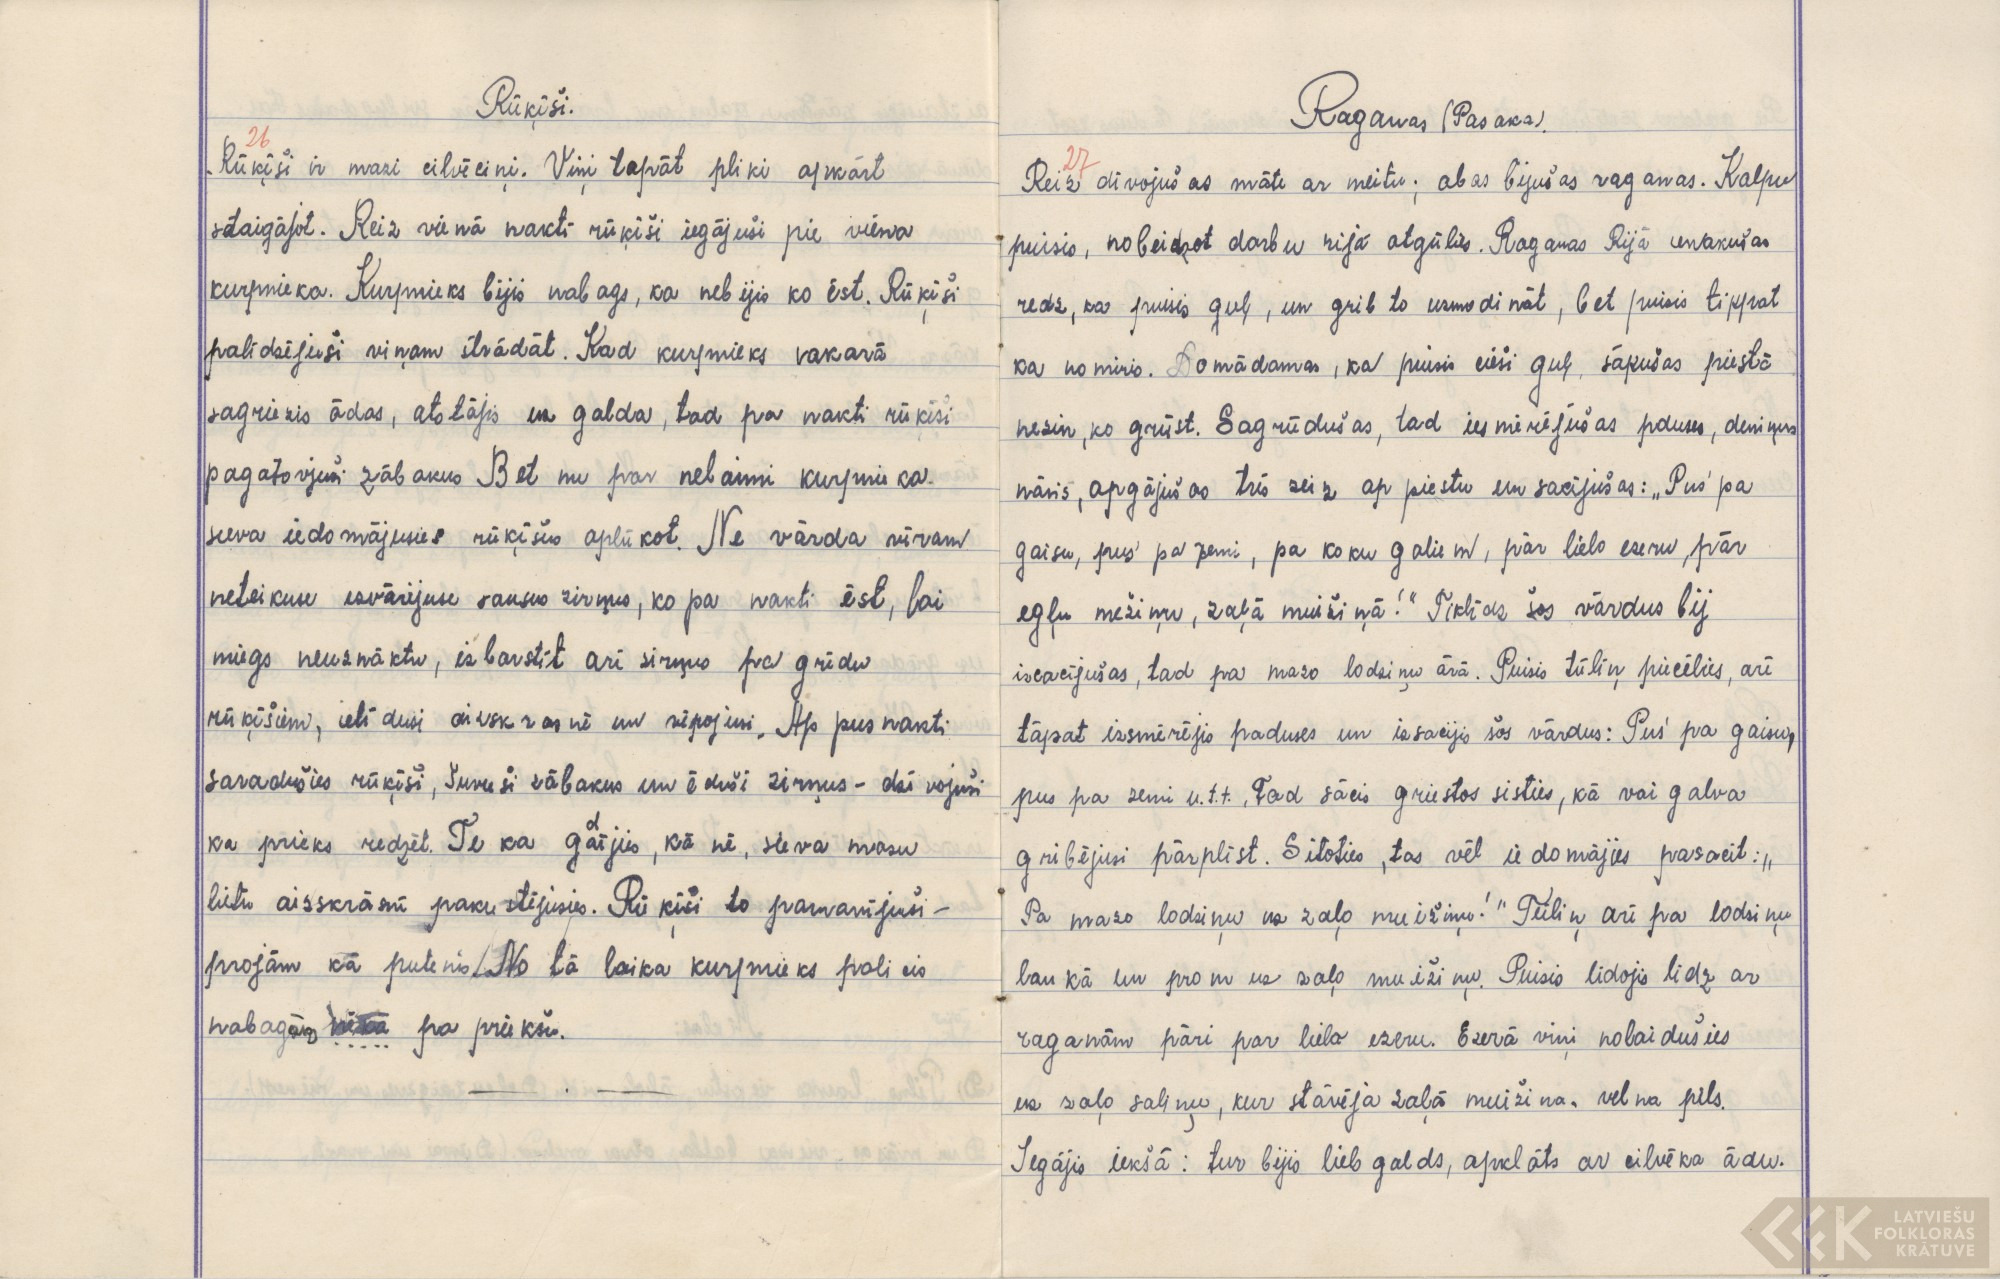 Rūķīši.
26
Rūķīši ir mazi cilvēciņi. Viņi tāpāt pliki apkārt
staigājot. Reiz vienā naktī rūķīši iegājuši pie viena
kurpnieka. Kurpnieks bijis nabags, ka nebijis ko ēst. Rūķīši
palīdzējuši viņam strādāt. Kad kurpnieks vakarā
sagriezis ādas, atstājis uz galda, tad pa nakti rūķīši
pagatavojuši zābakus Bet nu par nelaimi kurpnieka
sieva iedomājusies rūķīšus aplūkot. Ne vārda vīram
neteikuse izvārījuse sausus zirņus, ko pa nakti ēst, lai
miegs neuznāktu, izbarstīt arī zirņus pa grīdu
rūķīšiem, ielīdusi aizskrāsnē un rēpojusi. Ap pusnakti
saradušies rūķīši, šuvuši zābakus un ēduši zirņus – dzīvojuši
ka prieks redzēt. Te ka gadījies, kā nē, sieva mazu
lietu aizskrāsnī pakustējusies. Rūķīši to pamanījuši –
projām kā putenis. No tā laika kurpnieks palicis
nabagās pa priekšu.
Raganas (Pasaka).
27
Reiz dzīvojušas māte ar meitu; abas bijušas raganas. Kalpu
puisis, nobeidzot darbu rijā atgūlies. Raganas Rijā ienākušas
redz, ka puisis guļ, un grib to uzmodināt, bet puisis tāpat
ka nomiris. Domādamas, ka puisis cieši guļ, sākušas piestā
nezin, ko grūst. Sagrūdušas, tad iesmērējušas pduses, deniņus
nāsis, apgājušas trīs reiz ap piestu un sacījušas: „Pus' pa
gaisu, pus' pa zemi, pa koku galiem, pār lielo ezeru, pār
egļu mežiņu, zaļā muižiņā!" Tiklīdz šos vārdus bij
izsacījušas, tad pa mazo lodziņu ārā. Puisis tūliņ piecēlies, arī
tāpat izsmērējis paduses un izsacijis šos vārdus: Pus' pa gaisu,
pus pa zemi u.t.t. Tad sācis griestos sisties, kā vai galva
gribējusi pārplīst. Sitoties, tas vēl iedomājies pasacit: „
Pa mazo lodziņu uz zaļo muižiņu!" Tūliņ arī pa lodziņu
laukā un prom uz zaļo muižiņu. Puisis lidojis līdz ar
raganām pāri par lielo ezeru. Ezerā viņi nolaidušies
uz zaļo saliņu, kur stāvēja zaļā muižina. velna pils.
Iegājis iekšā: tur bijis liels galds, apklāts ar cilvēka ādu.
LATVIEŠU
FOLKLORAS
KRĀTUVE